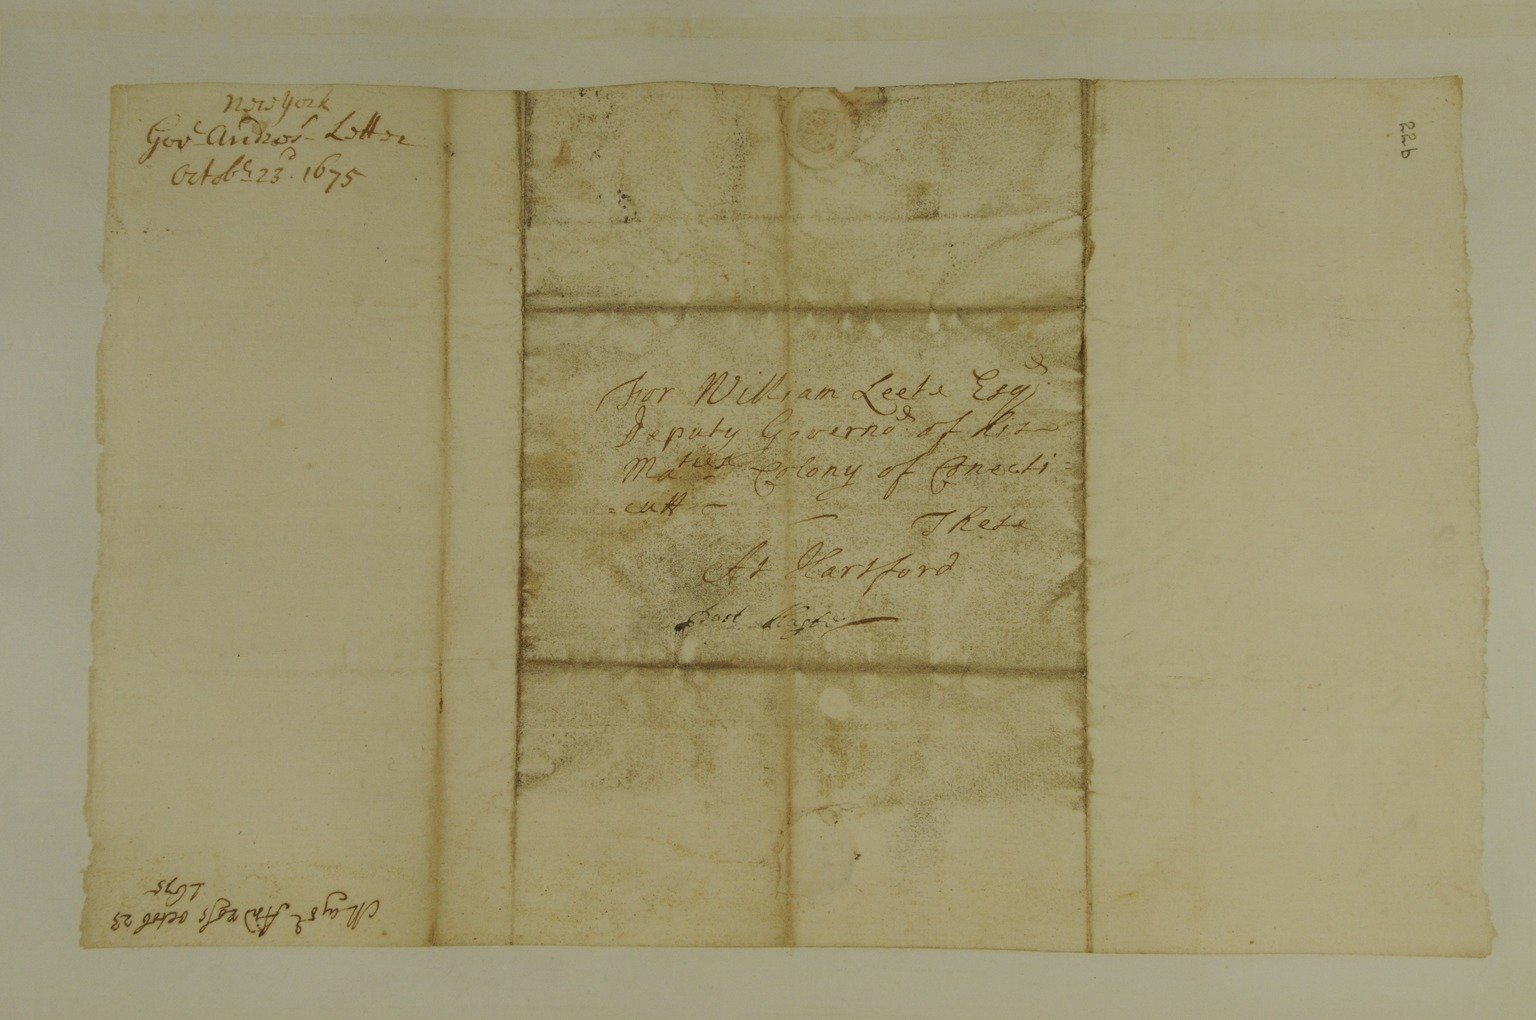 New York
Govr Andros's Letter
Octobr 23d. 1675
22b
For William Leete Esqr.
Deputy Governor of his
Maties Colony of Conecti=
=cutt
These
At Hartford
Post
Mayor Andross octob 23
1675